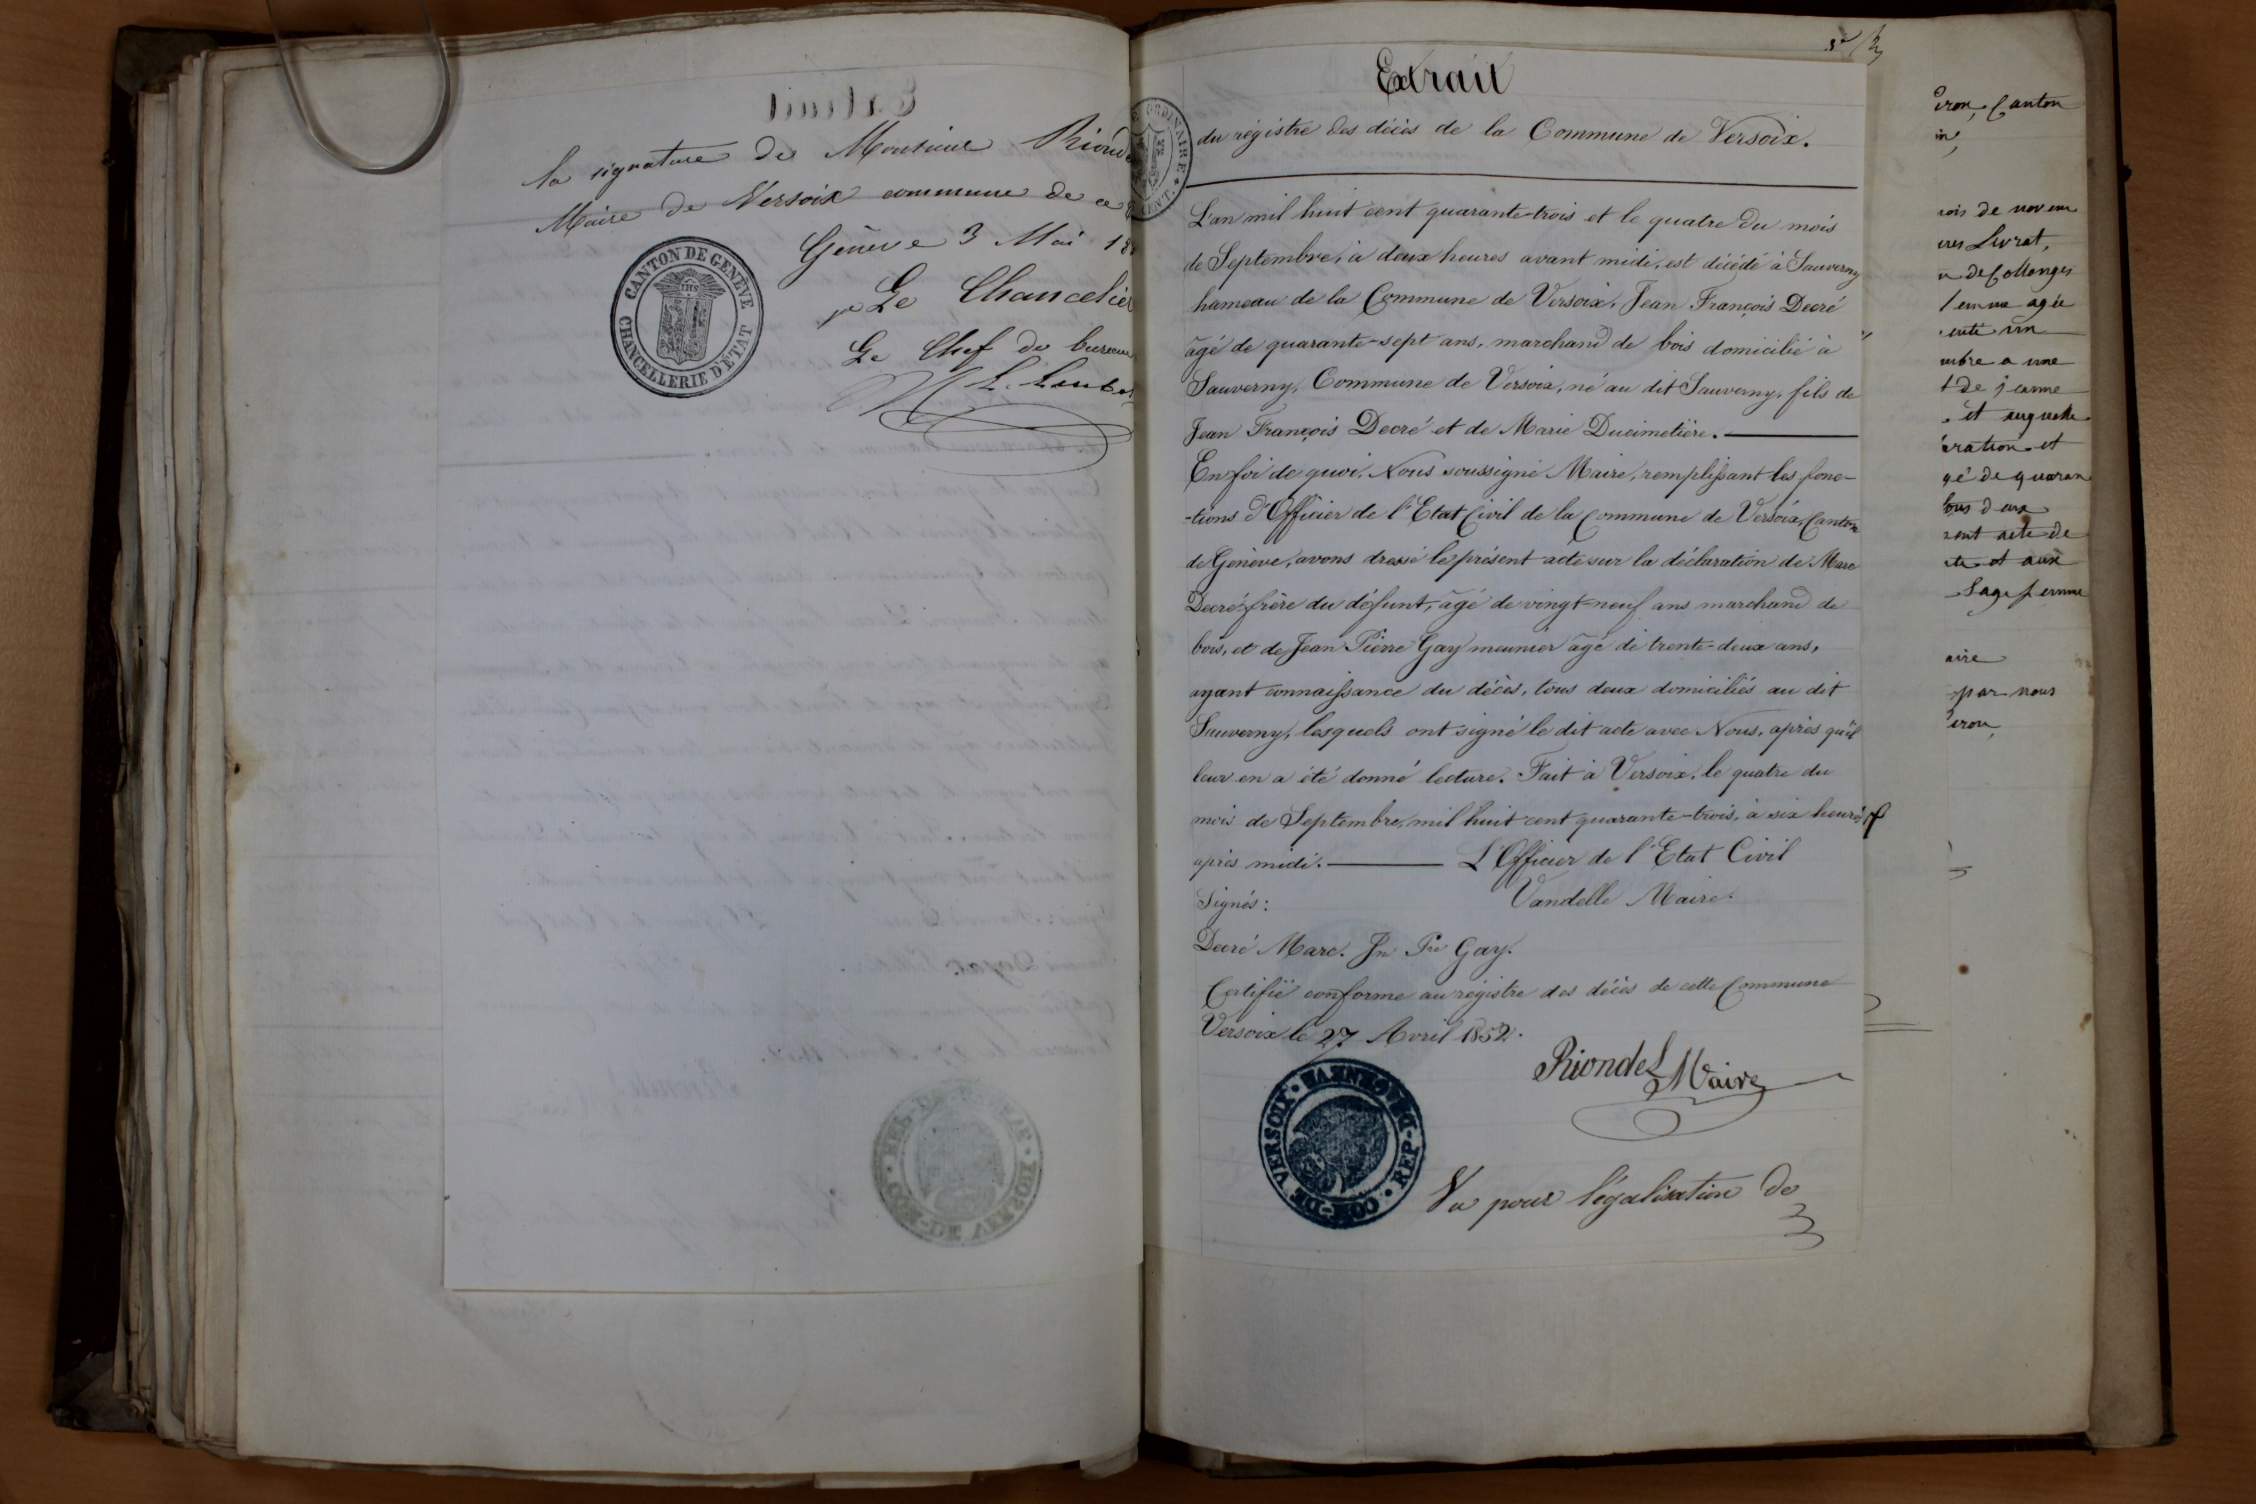 la signature de Monsieur
Maire de Versoix commune de ce
Genève 3 Mai
Le Chancelier
Le Chef de bureau
CANTON DE GENÈVE
CHANCELLERIE D'ÉTAT
Extrait
du régistre des décès de la Commune de Versoix.
L'an mil huit cent quarante-trois et le quatre du mois
de Septembre, à deux heures avant midi, est décédé à Sauverny
hameau de la Commune de Versoix, Jean François Decré
âgé de quarante-sept ans, marchand de bois domicilié à
Sauverny, Commune de Versoix, né au dit Sauverny, fils de
Jean François Decré et de Marie Ducimetière.
En foi de quoi, Nous soussigné Maire, remplissant les fonc-
-tions d'Officier de l'Etat Civil de la Commune de Versoix, Canton
de Genève, avons dressé le présent acte sur la déclaration de Marc
Decré frère du défunt, âgé de vingt-neuf ans marchand de
bois, et de Jean Pierre Gay meunier âgé de trente-deux ans,
ayant connaissance du décès, tous deux domiciliés au dit
Sauverny, lesquels ont signé le dit acte avec Nous, après qu'il
leur en a été donné lecture. Fait à Versoix, le quatre du
mois de Septembre, mil huit cent quarante-trois, à six heures
après midi. L'Officier de l'Etat Civil
Signés: Vandelle Maire.
Decré Marc. Jn Pre Gay.
Certifié conforme au régistre des décès de cette Commune
Versoix le 27 Avril 1852.
Riondel Maire
COM. DE VERSOIX. REP.
Vu pour légalisation de
Canton
de novem
Livrat,
de Collonges
femme agée
un
a une
de jeanne
et
et
de quaran
tous deux
acte de
et aux
Sage femme
aire
par nous